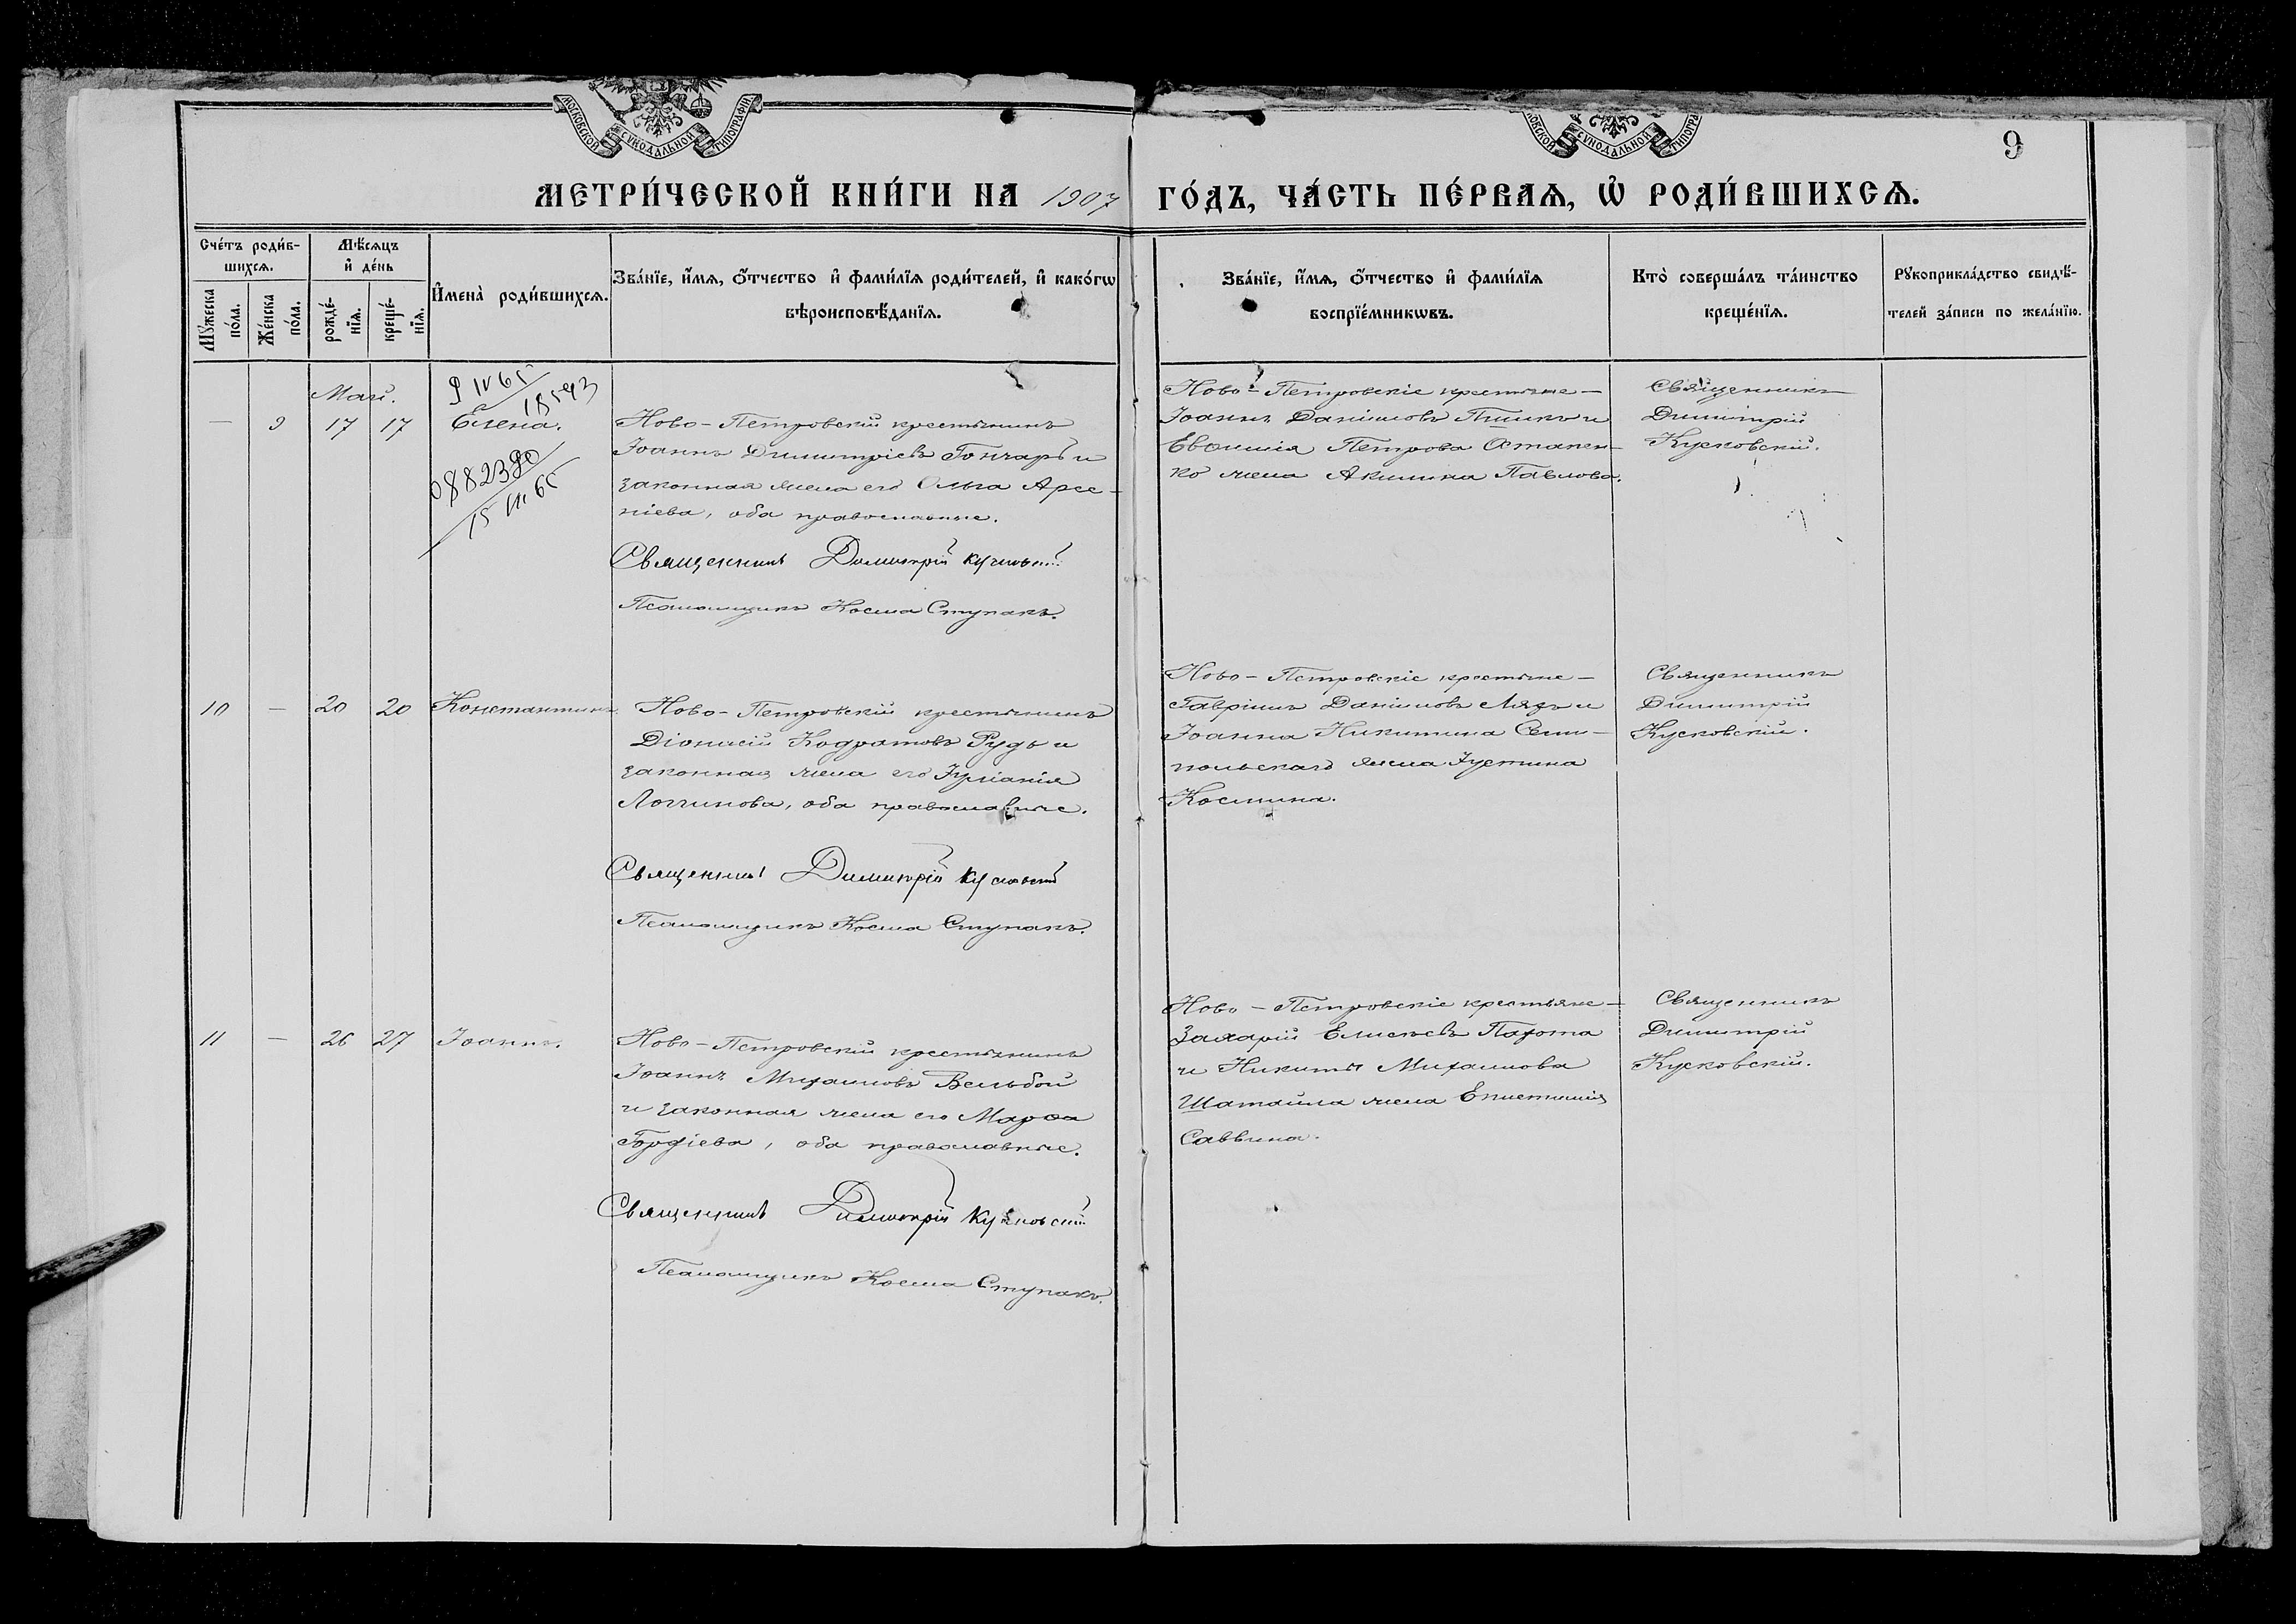 МОСКОВСКОЙ СѴНОДАЛЬНОЙ ТИПОГРАФІИ
9
МЕТРИ́ЧЕСКОЙ КНИ́ГИ НА 1907 ГО́ДЪ, ЧА́СТЬ ПЕ́РВАѦ, Ѡ҆ РОДИ́ВШИХСѦ.
Сче́тъ роди́в-
шихсѧ.
Мѣ́сѧцъ
и҆ де́нь
Мꙋ́жеска
по́ла.
Же́нска
по́ла.
рожде́-
нїѧ.
креще́-
нїѧ.
И҆мена̀ роди́вшихсѧ.
Зва́нїе, и҆́мѧ, ѻ҆́тчество и҆ фами́лїѧ роди́телей, и҆ како́гѡ
вѣроисповѣ́данїѧ.
Зва́нїе, и҆́мѧ, ѻ҆́тчество и҆ фами́лїѧ
воспрїе́мникѡвъ.
Кто̀ соверша́лъ та́инство
креще́нїѧ.
Рꙋкоприкла́дство свидѣ́-
телей за́писи по жела́нїю.
Май.
— 9 17 17 Елена.
18543
0882380
Ново-Петровскій крестьянинъ
Іоаннъ Димитріевъ Гончаръ и
законная жена его Ольга Арсе-
ніева, оба православные.
Священникъ Димитрій Кусковскій
Псаломщикъ Косма Ступакъ.
Ново-Петровскіе крестьяне —
Іоаннъ Даніиловъ и
Евѳимія Петрова Остапен-
ко жена Акилина Павлова.
Священникъ
Димитрій
Кусковскій.
10 — 20 20 Константинъ.
Ново-Петровскій крестьянинъ
Діонисій Кодратовъ Рудь и
законная жена его Іуліанія
Логгинова, оба православные.
Священникъ Димитрій Кусковскій
Псаломщикъ Косма Ступакъ.
Ново-Петровскіе крестьяне —
Гавріилъ Даніиловъ и
Іоанна Никитина
польскаго жена Іустина
Космина.
Священникъ
Димитрій
Кусковскій.
11 — 26 27 Іоаннъ.
Ново-Петровскій крестьянинъ
Іоаннъ Михаиловъ Вельбой
и законная жена его Марѳа
Гордіева, оба православные.
Священникъ Димитрій Кусковскій
Псаломщикъ Косма Ступакъ.
Ново-Петровскіе крестьяне —
Захарій Елисѣевъ
и Никиты Михаилова
Шатайла жена Епистимія
Саввина.
Священникъ
Димитрій
Кусковскій.